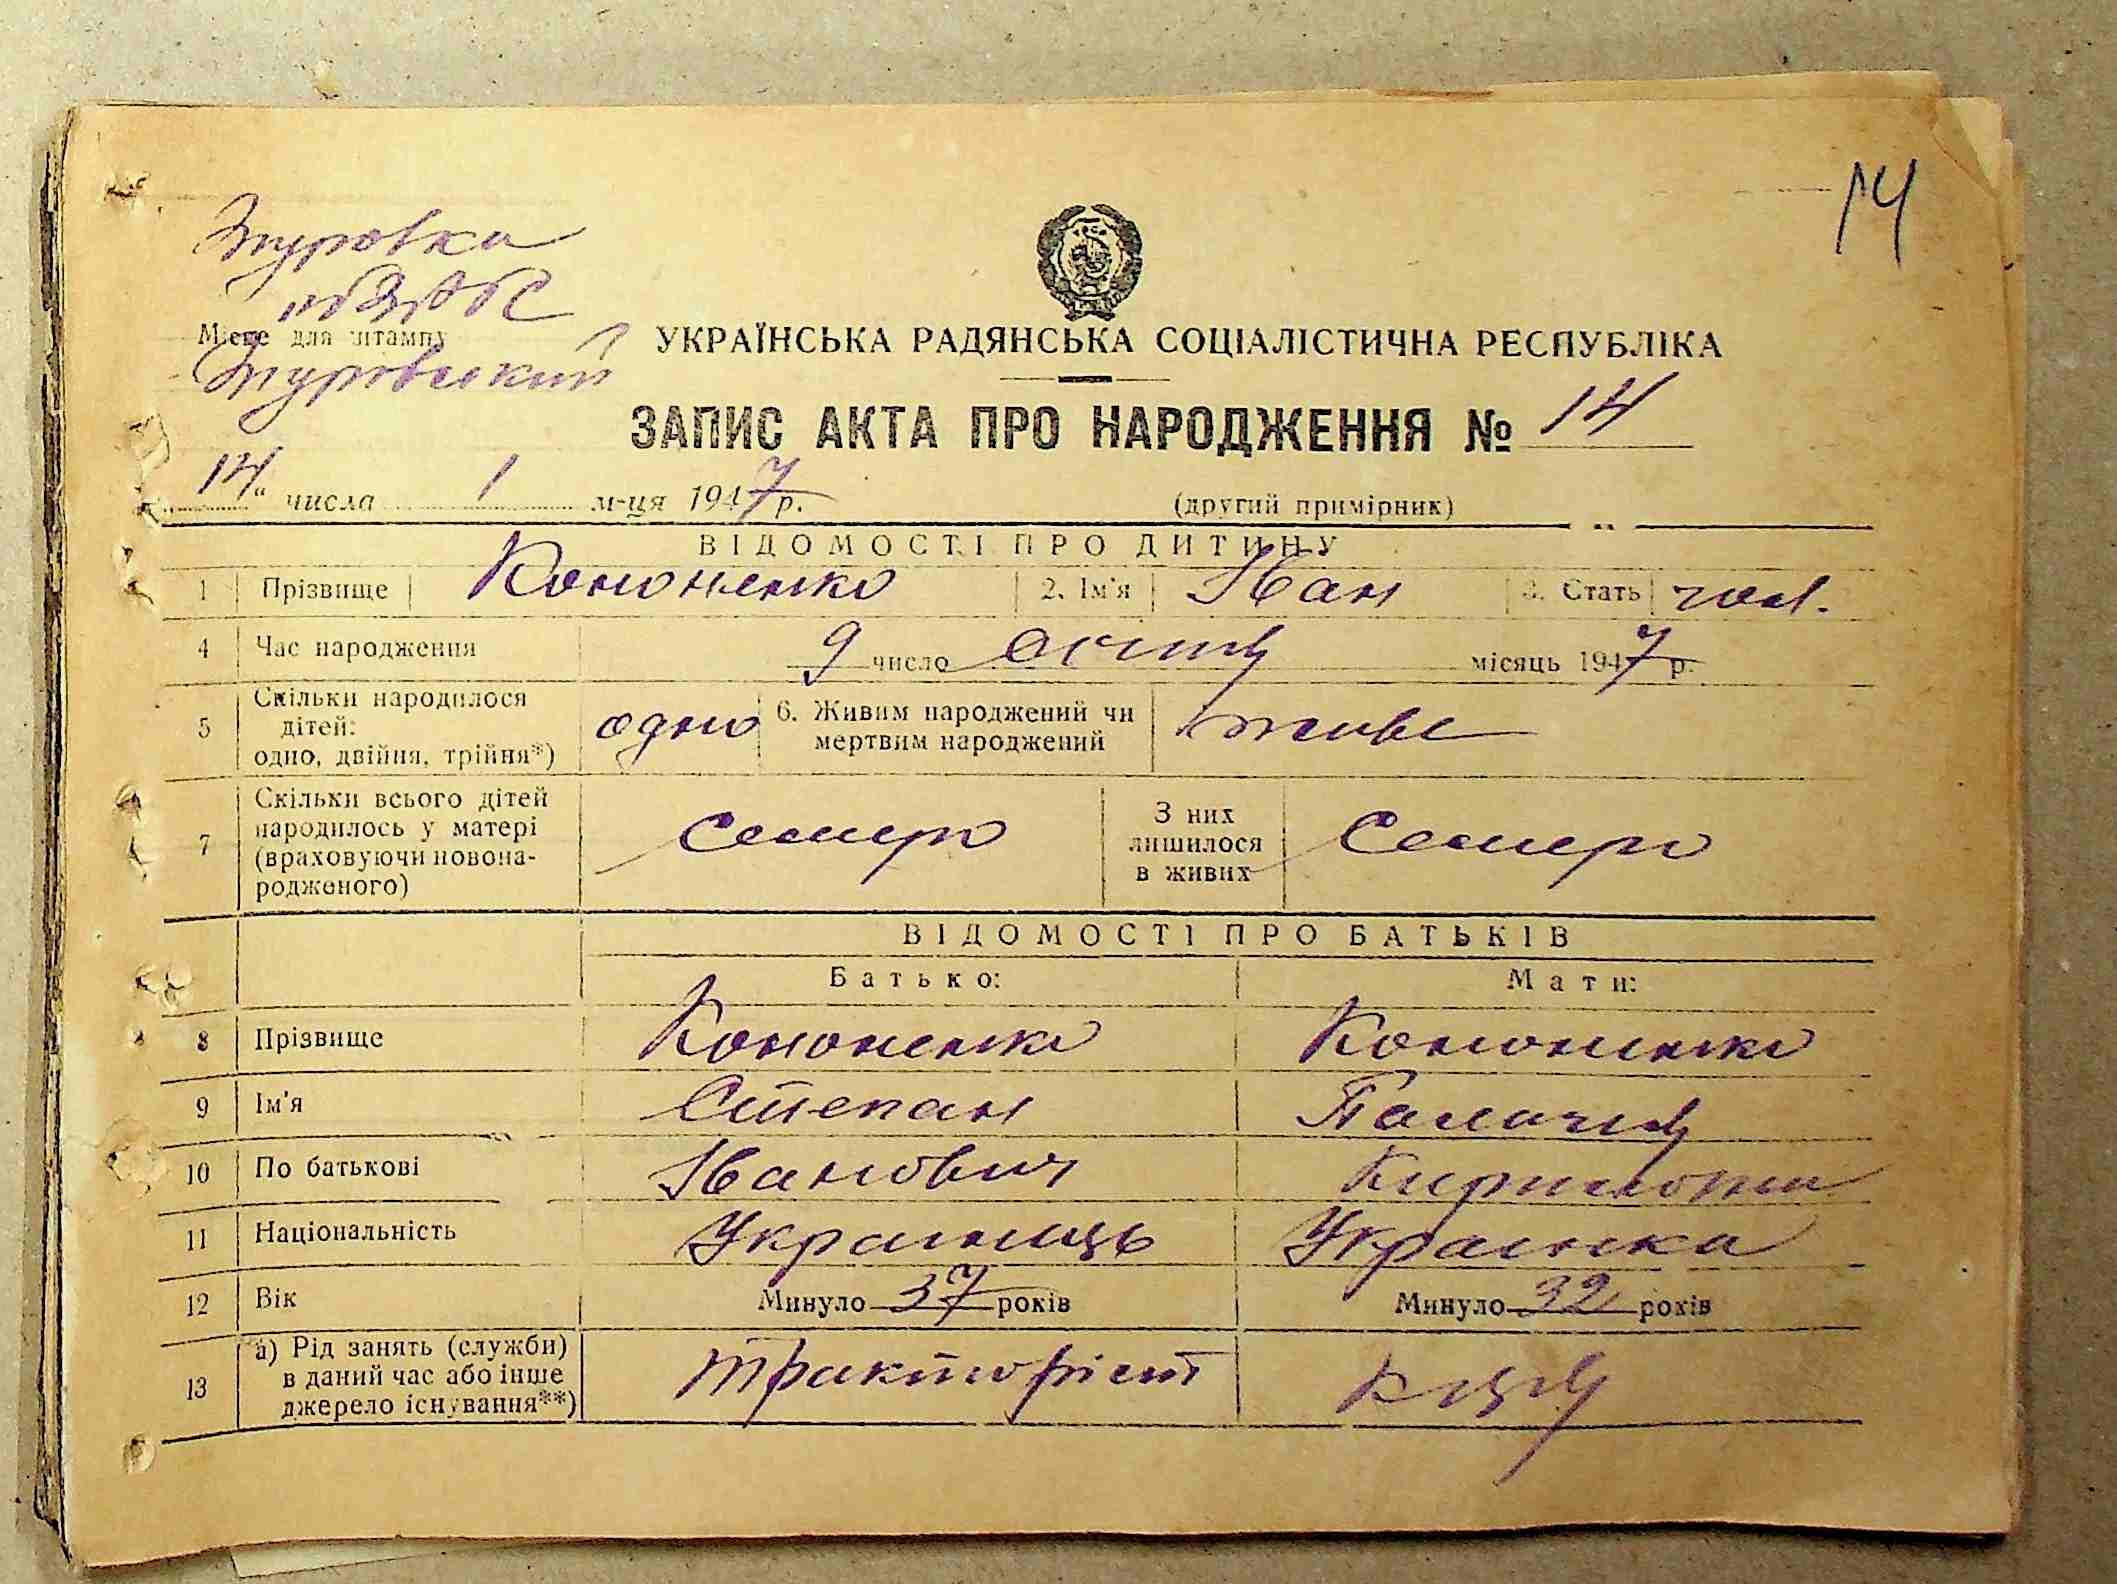 14
Згуровка
Місце для штампу
Згуровський
УКРАЇНСЬКА РАДЯНСЬКА СОЦІАЛІСТИЧНА РЕСПУБЛІКА
ЗАПИС АКТА ПРО НАРОДЖЕННЯ № 14
14 " числа 1 м-ця 1947 р.
(другий примірник)
ВІДОМОСТІ ПРО ДИТИНУ
1 Прізвище Кононенко 2. Ім'я Іван 3. Стать чол.
4 Час народження 9 число січня місяць 1947 р.
5 Скільки народилося дітей: одно, двійня, трійня*) одно 6. Живим народжений чи мертвим народжений живе
7 Скільки всього дітей народилось у матері (враховуючи новонародженого) Семеро З них лишилося в живих Семеро
ВІДОМОСТІ ПРО БАТЬКІВ
Батько: Мати:
8 Прізвище Кононенко Кононенко
9 Ім'я Степан
10 По батькові Іванович Кириловна
11 Національність Украинець Украинка
12 Вік Минуло 37 років Минуло 32 років
13 а) Рід занять (служби) в даний час або інше джерело існування**) тракторіст